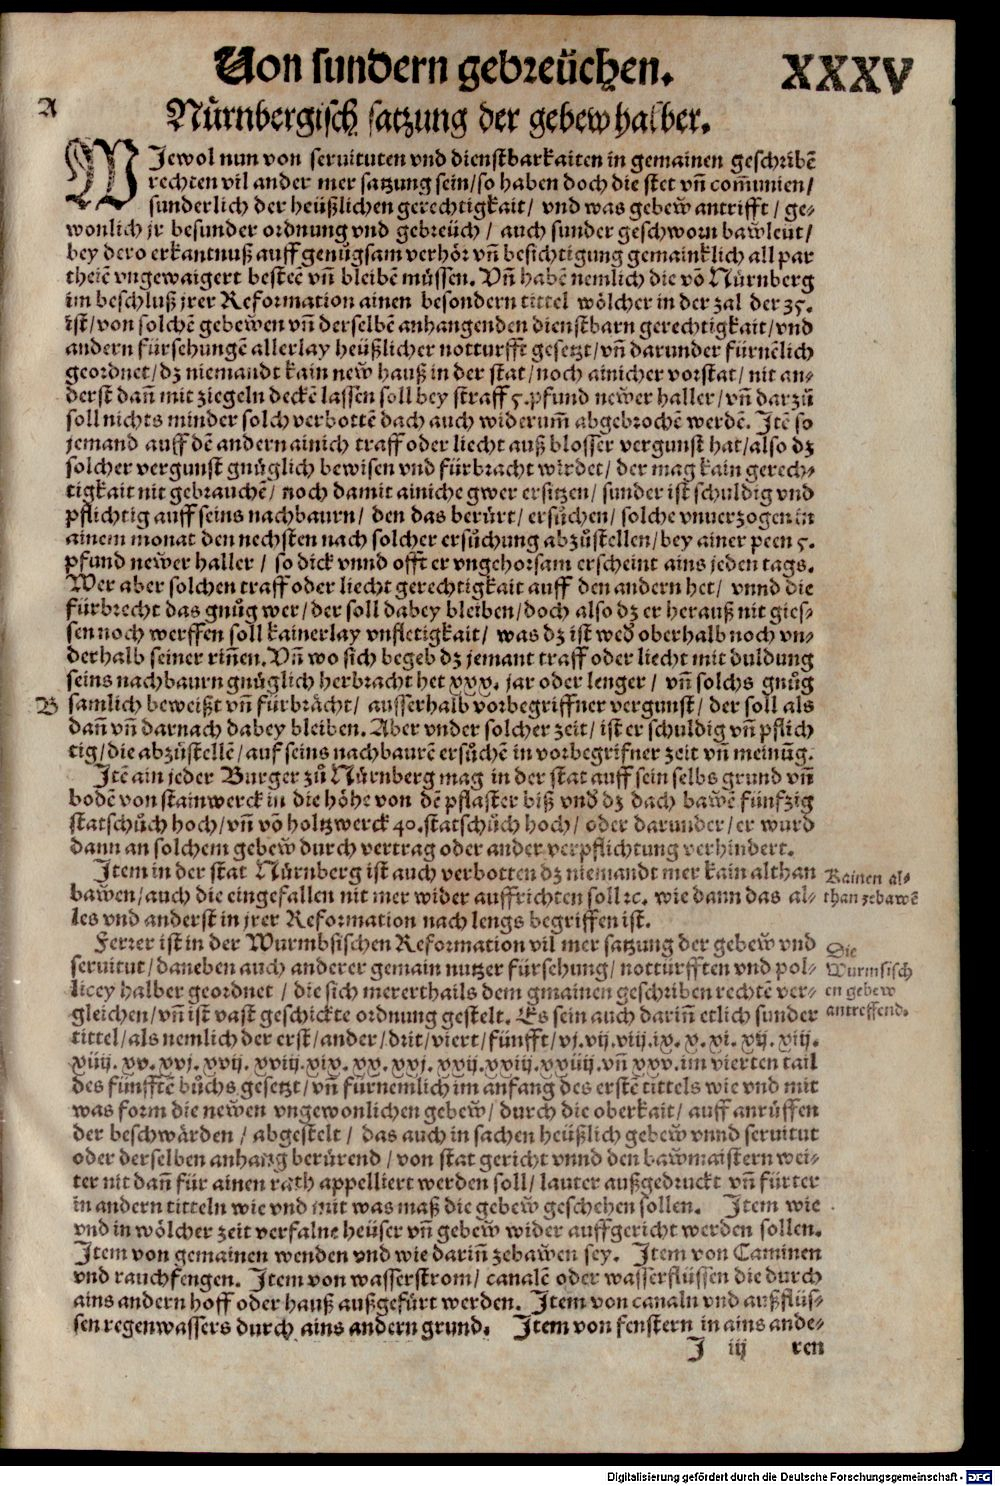 Von sundern gebreüchen. XXXV
A
Nůrnbergisch satzung der gebew halber.
WJewol nun von seruituten vnd dienstbarkaiten in gemainen geschribē
rechten vil ander mer satzung sein/so haben doch die stet vñ com̃unien/
sunderlich der heüßlichen gerechtigkait/ vnd was gebew̃ antrifft/ ge-
wonlich jr besunder ordnung vnd gebreüch/ auch sunder geschworn baw̃leüt/
bey dero erkantnuß auff genůgsam verhör vñ besichtigung gemainklich all par
theiē vngewaigert besteē vñ bleibē müssen. Vñ habē nemlich die vō Nürnberg
im beschluß jrer Reformation ainen besondern tittel wölcher in der zal der 35.
ist/von solchē gebew̃en vñ derselbē anhangenden dienstbarn gerechtigkait/vnd
andern fürsehungē allerlay heüßlicher notturfft gesetzt/vñ darunder fürnēlich
geordnet/dz niemandt kain new̃ hauß in der stat/noch ainicher vorstat/ nit an-
derst dañ mit ziegeln deckē lassen soll bey straff 5.pfund new̃er haller/vñ darzů
soll nichts minder solch verbottē dach auch widerum̃ abgebrochē werdē. Jtē so
jemand auff dē andern ainich traff oder liecht auß blosser vergunst hat/also dz
solcher vergunst gnůglich bewisen vnd fürbracht wirdet/ der mag kain gerech-
tigkait nit gebrauchē/ noch damit ainiche gwer ersitzen/ sunder ist schuldig vnd
pflichtig auff seins nachbaurn/ den das berürt/ ersůchen/ solche vnuerzogen in
ainem monat den nechsten nach solcher ersůchung abzůstellen/bey ainer peen 5.
pfund new̃er haller/ so dick vnnd offt er vngehorsam erscheint ains jeden tags.
Wer aber solchen traff oder liecht gerechtigkait auff den andern het/ vnnd die
fürbrecht das gnůg wer/der soll dabey bleiben/doch also dz er herauß nit gies-
sen noch werffen soll kainerlay vnfletigkait/ was dz ist wed̃ oberhalb noch vn-
derhalb seiner riñen. Vñ wo sich begeb dz jemant traff oder liecht mit duldung
seins nachbaurn gnůglich herbracht het xxx. jar oder lenger/ vñ solchs gnůg
B
samlich beweißt vñ fürbrächt/ ausserhalb vorbegriffner vergunst/ der soll als
dañ vñ darnach dabey bleiben. Aber vnder solcher zeit/ ist er schuldig vñ pflich
tig/die abzůstellē/auf seins nachbaurē ersůchē in vorbegrifner zeit vñ meinũg.
Jtē ain jeder Burger zů Nürnberg mag in der stat auff sein selbs grund vñ
bodē von stainwerck in die höhe von dē pflaster biß vnd̃ dz dach baw̃ē fünfzig
statschůch hoch/vñ vō holtzwerck 40.statschůch hoch/ oder darunder/er wurd
dann an solchem gebew̃ durch vertrag oder ander verpflichtung verhindert.
Jtem in der stat Nürnberg ist auch verbotten dz niemandt mer kain althan
baw̃en/auch die eingefallen nit mer wider auffrichten soll ꝛc. wie dann das al-
les vnd anderst in jrer Reformation nach lengs begriffen ist.
Kainen al-
than zebawē
Ferrer ist in der Wurmbsischen Reformation vil mer satzung der gebew̃ vnd
seruitut/daneben auch anderer gemain nutzer fürsehung/ nottürfften vnd pol-
licey halber geordnet/ die sich mererthails dem gmainen geschriben rechtē ver-
gleichen/vñ ist vast geschickte ordnung gestelt. Es sein auch dariñ etlich sunder
Die
Wurmsisch
en gebew
antreffend.
tittel/als nemlich der erst/ander/drit/viert/fünfft/vj.vij.viij.ix. x. xi. xij. xiij.
xiiij. xv. xvj. xvij. xviij.xix. xx. xxj. xxij.xxiij.xxiiij.vñ xxv.im vierten tail
des fünfftē bůchs gesetzt/vñ fürnemlich im anfang des erstē tittels wie vnd mit
was form die new̃en vngewonlichen gebew̃/durch die oberkait/ auff anrüffen
der beschwärden/ abgestelt/ das auch in sachen heüßlich gebew̃ vnnd seruitut
oder derselben anhang berürend/von stat gericht vnnd den baw̃maistern wei-
ter nit dañ für ainen rath appelliert werden soll/lauter außgedruckt vñ fürter
in andern titteln wie vnd mit was maß die gebew̃ geschehen sollen. Jtem wie
vnd in wölcher zeit verfalne heüser vñ gebew̃ wider auffgericht werden sollen.
Jtem von gemainen wenden vnd wie dariñ zebaw̃en sey. Jtem von Caminen
vnd rauchfengen. Jtem von wasserstrom/ canalē oder wasserflüssen die durch
ains andern hoff oder hauß außgefürt werden. Jtem von canaln vnd außflüs-
sen regenwassers durch ains andern grund. Jtem von fenstern in ains ande-
J iij ren
Digitalisierung gefördert durch die Deutsche Forschungsgemeinschaft - DFG